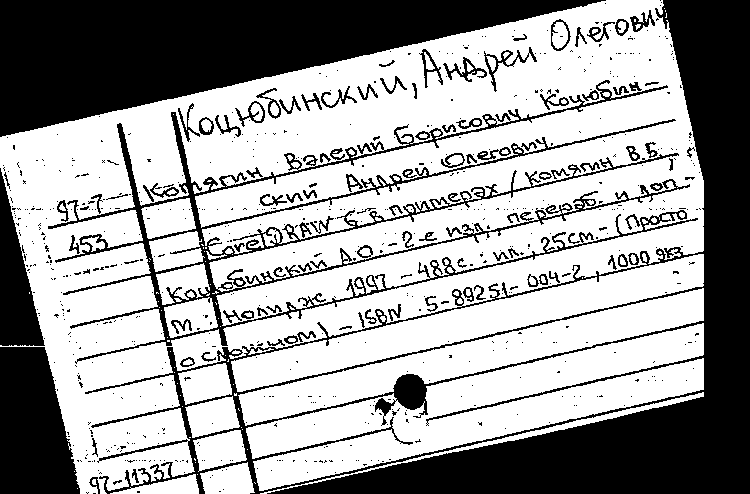 Коцюбинский, Андрей Олегович
Комягин, Валерий Борисович, Коцюбин-
97-7 ский, Андрей Олегович.
453 CorelDRAW 6 в примерах / Комягин В.Б.,
Коцюбинский А.О. - 2-е изд., перераб. и доп. -
М. : Нолидж, 1997. - 488с. : ил.; 25см. - (Просто
о сложном). - ISBN 5-89251-004-2, 1000 экз
97-11337